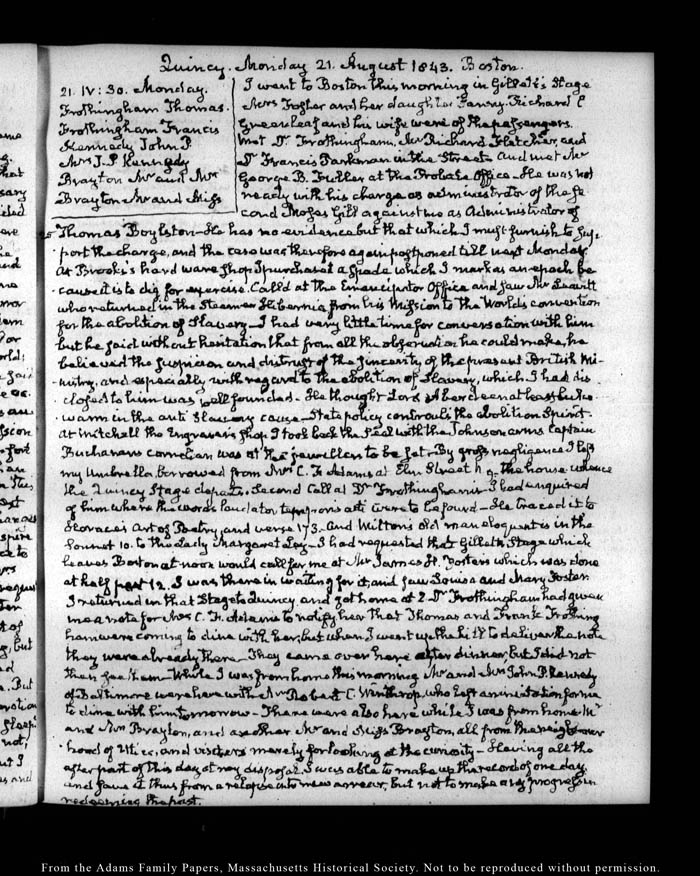 Quincy. Monday 21. August 1843. Boston.
21. IV:30. Monday.
Frothingham Thomas.
Frothingham Francis
Kennedy John P.
Mrs J. P Kennedy
Brayton Mr and Mrs
Brayton Mr and Miss
I went to Boston this morning in Gillett's Stage
Mrs and her daughter Fanny, Richard C
Greenleaf and his wife were of the passengers.
met Dr Frothingham, Mr Richard Fletcher, and
Dr Francis Parkman in the Streets and met Mr
George B. Fuller at the Probate Office – He was not
ready with his charge as administrator of the Se
cond Moses Gill against me as Administrator of
Thomas Boylston – He has no evidence but that which I must furnish to sup-
port the charge, and the case was therefore again postponed till next Monday.
At Brooks's hard ware shop I purchased a spade which I mark as an epoch be
cause it is to dig for exercise. Call'd at the Emancipator Office and saw Mr Leavitt
who returned in the Steamer Hibernia from his Mission to the World's convention
for the abolition of Slavery – I had very little time for conversation with him
but he said without hesitation that from all the observation he could make, he
believed the suspicion and distrust of the sincerity of the present British Mi-
nistry, and especially with regard to the abolition of Slavery, which I had dis
closed to him was well founded – He thought Lord Aberdeen at least luke
warm in the anti Slavery cause – State policy controuls the abolition Spirit.
At Mitchell the Engraver's shop I took back the Seal with the Johnson arms Captain
Buchanan's cornelian was at the jewellers to be set – By gross negligence I left
my Umbrella borrowed from Mrs C. F. Adams at Elm Street the house whence
the Quincy Stage departs. Second call at Dr Frothingham's – I had enquired
of him where the words laudator temporis acti were to be found – He traced it to
Horace's Art of Poetry, and verse 173. And Milton's old man eloquent is in the
Sonnet 10. to the Lady Margaret Ley – I had requested that Gillett's Stage which
leaves Boston at noon would call for me at Mr James H. Foster's which was done
at half past 12. I was there in waiting for it, and saw Louisa and Mary Foster
I returned in that Stage to Quincy and got home at 2. Dr Frothingham had given
me a note for Mrs C. F. Adams to notify her that Thomas and Frank Frothing
ham were coming to dine with her, but when I went up the hill to deliver the note
they were already there – They came over here after dinner, but I did not
then see them – While I was from home this morning Mr and Mrs John P. Kennedy
of Baltimore were here with Mr Robert C. Winthrop, who left an invitation for me
to dine with him tomorrow – There were also here while I was from home Mr
and Mrs Brayton, and another Mr and Miss Brayton, all from the neighbour
hood of Utica, and visiters merely for looking at the curiosity – Having all the
after part of this day at my disposal I was able to make up the record of one day
and save it thus from a relapse into new arrear, but not to make any progress in
redeeming the past.
From the Adams Family Papers, Massachusetts Historical Society. Not to be reproduced without permission.